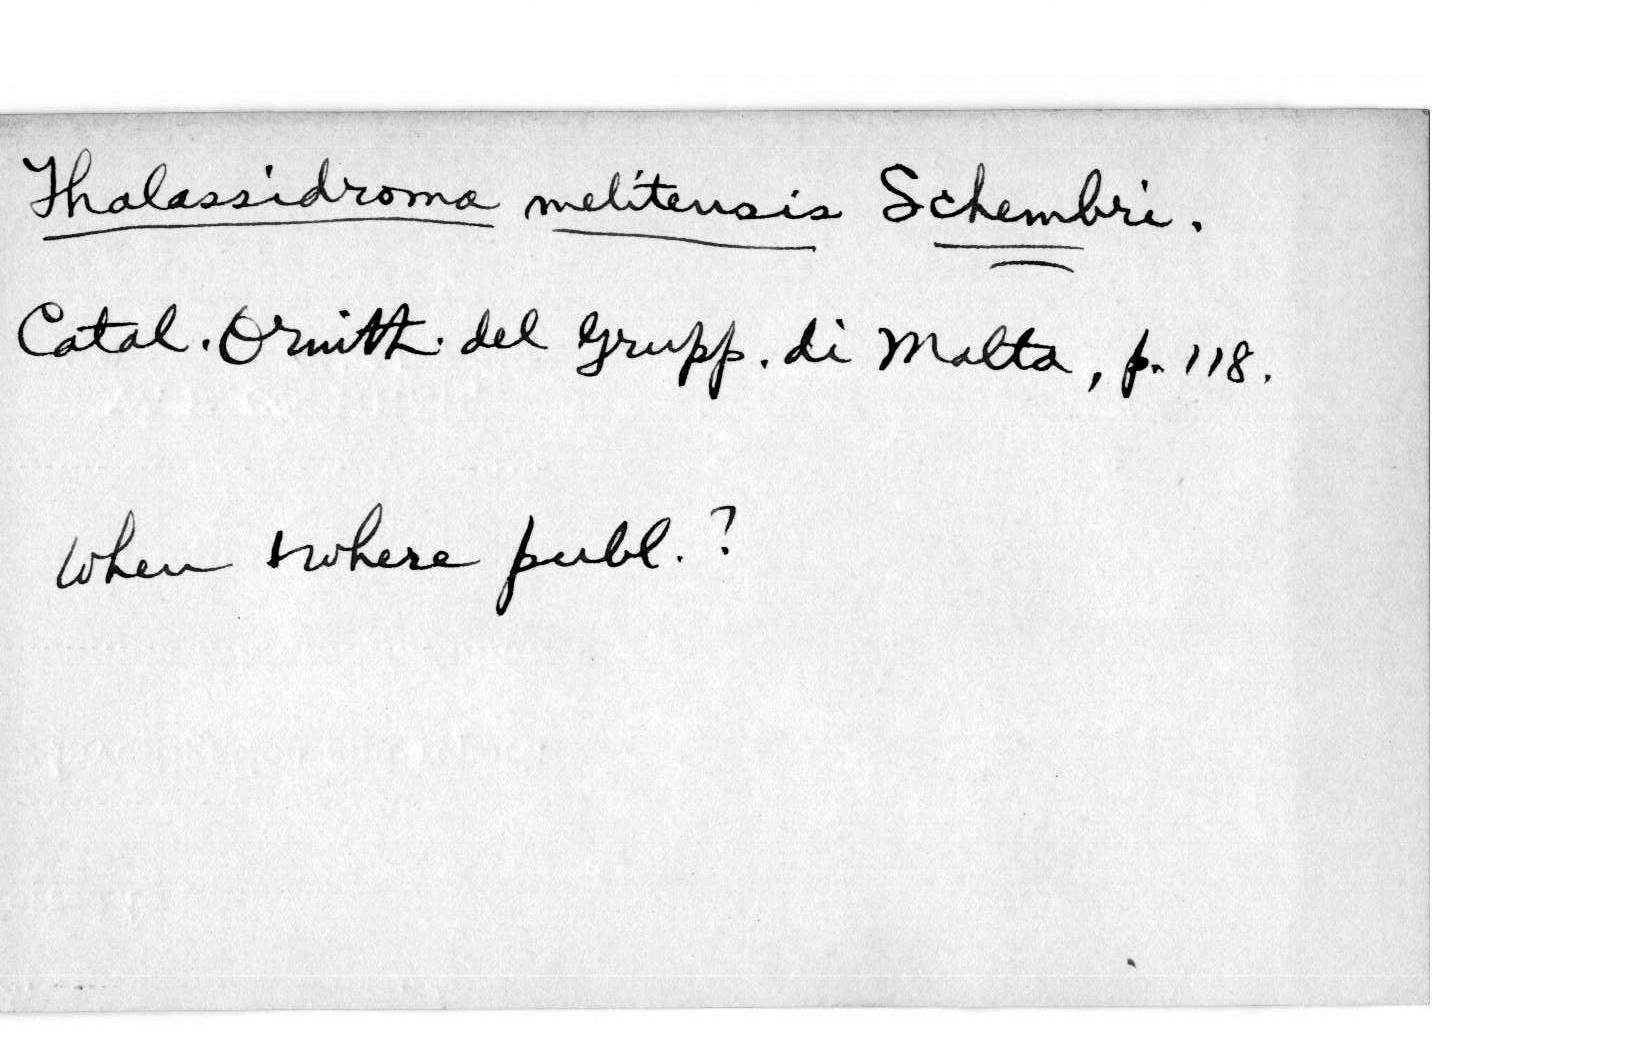 Thalassidroma melitensis Schembri.
Catal. Ornith. del Grupp. di Malta, p. 118.
When & where publ.?